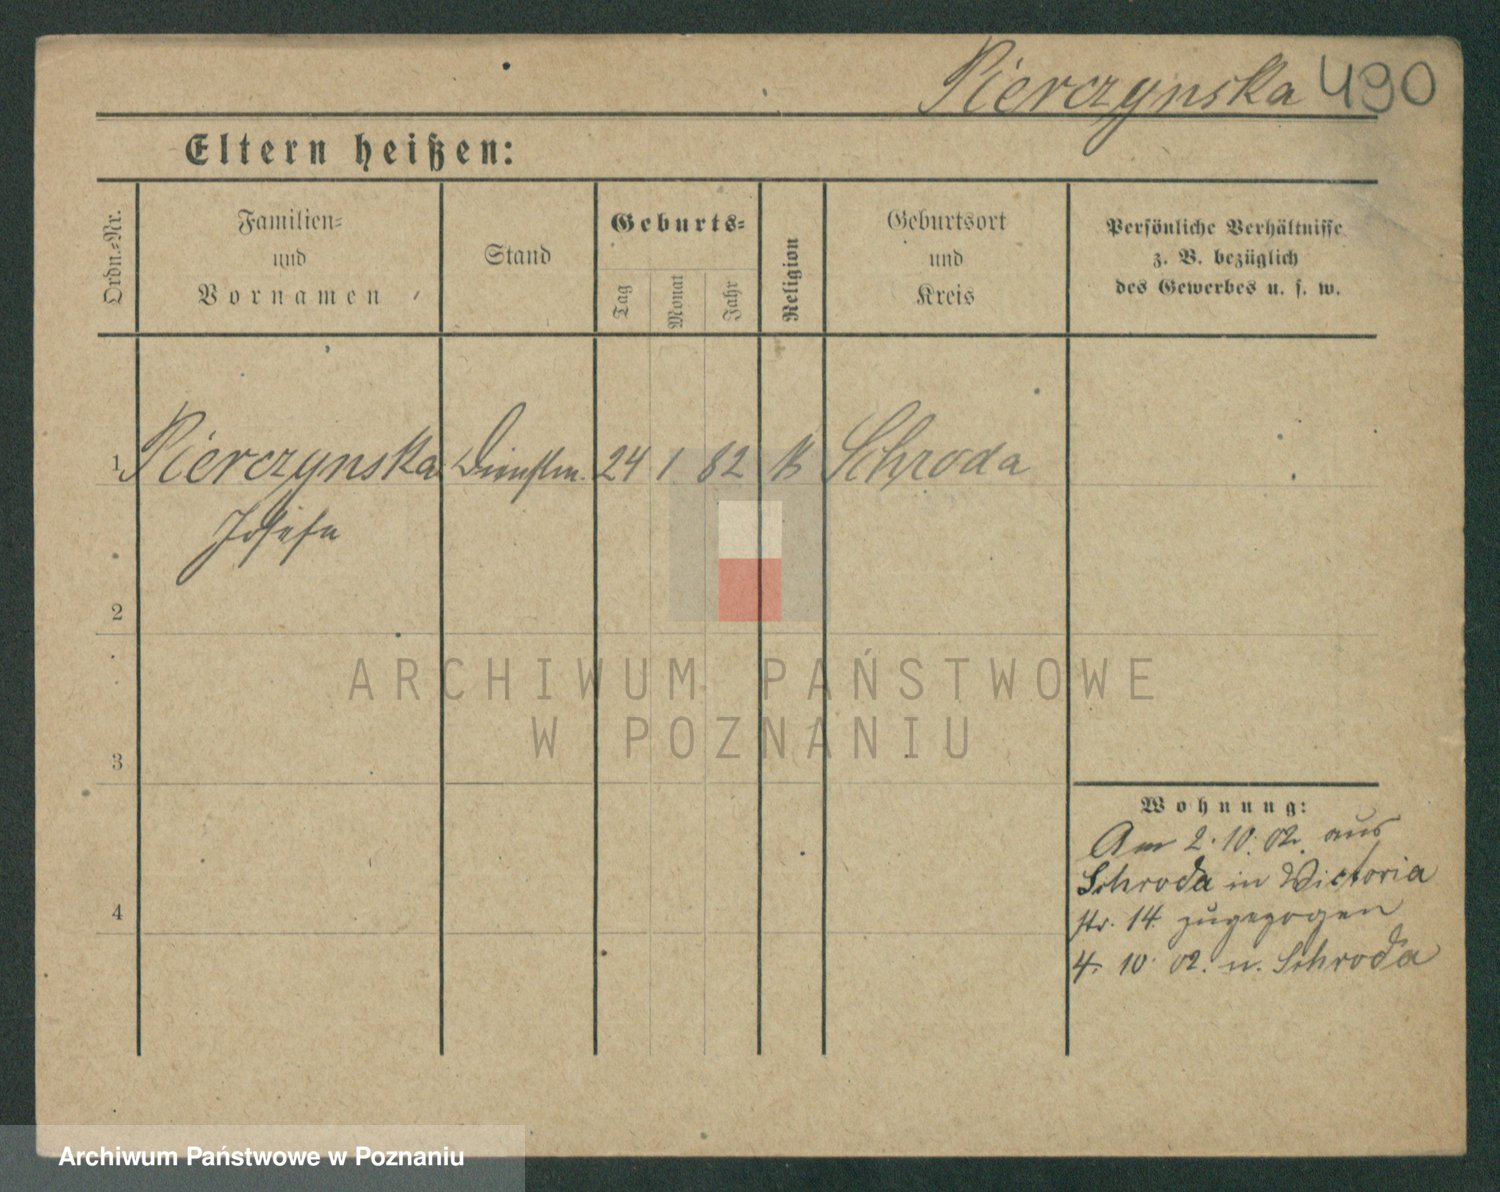 Pierczynska 490
Eltern heißen:
Ordn.-Nr.
Familien-
und
Vornamen
Stand
Geburts-
Tag
Monat
Jahr
Religion
Geburtsort
und
Kreis
Persönliche Verhältnisse
z. B. bezüglich
des Gewerbes u. s. w.
1 Pierczynska Dienstm. 24 1 82 k Schroda
Josefa
2
3
4
Wohnung:
Am 2.10.02. aus
Schroda in Victoria
str. 14 zugezogen
4. 10. 02. n. Schroda
ARCHIWUM PAŃSTWOWE
W POZNANIU
Archiwum Państwowe w Poznaniu